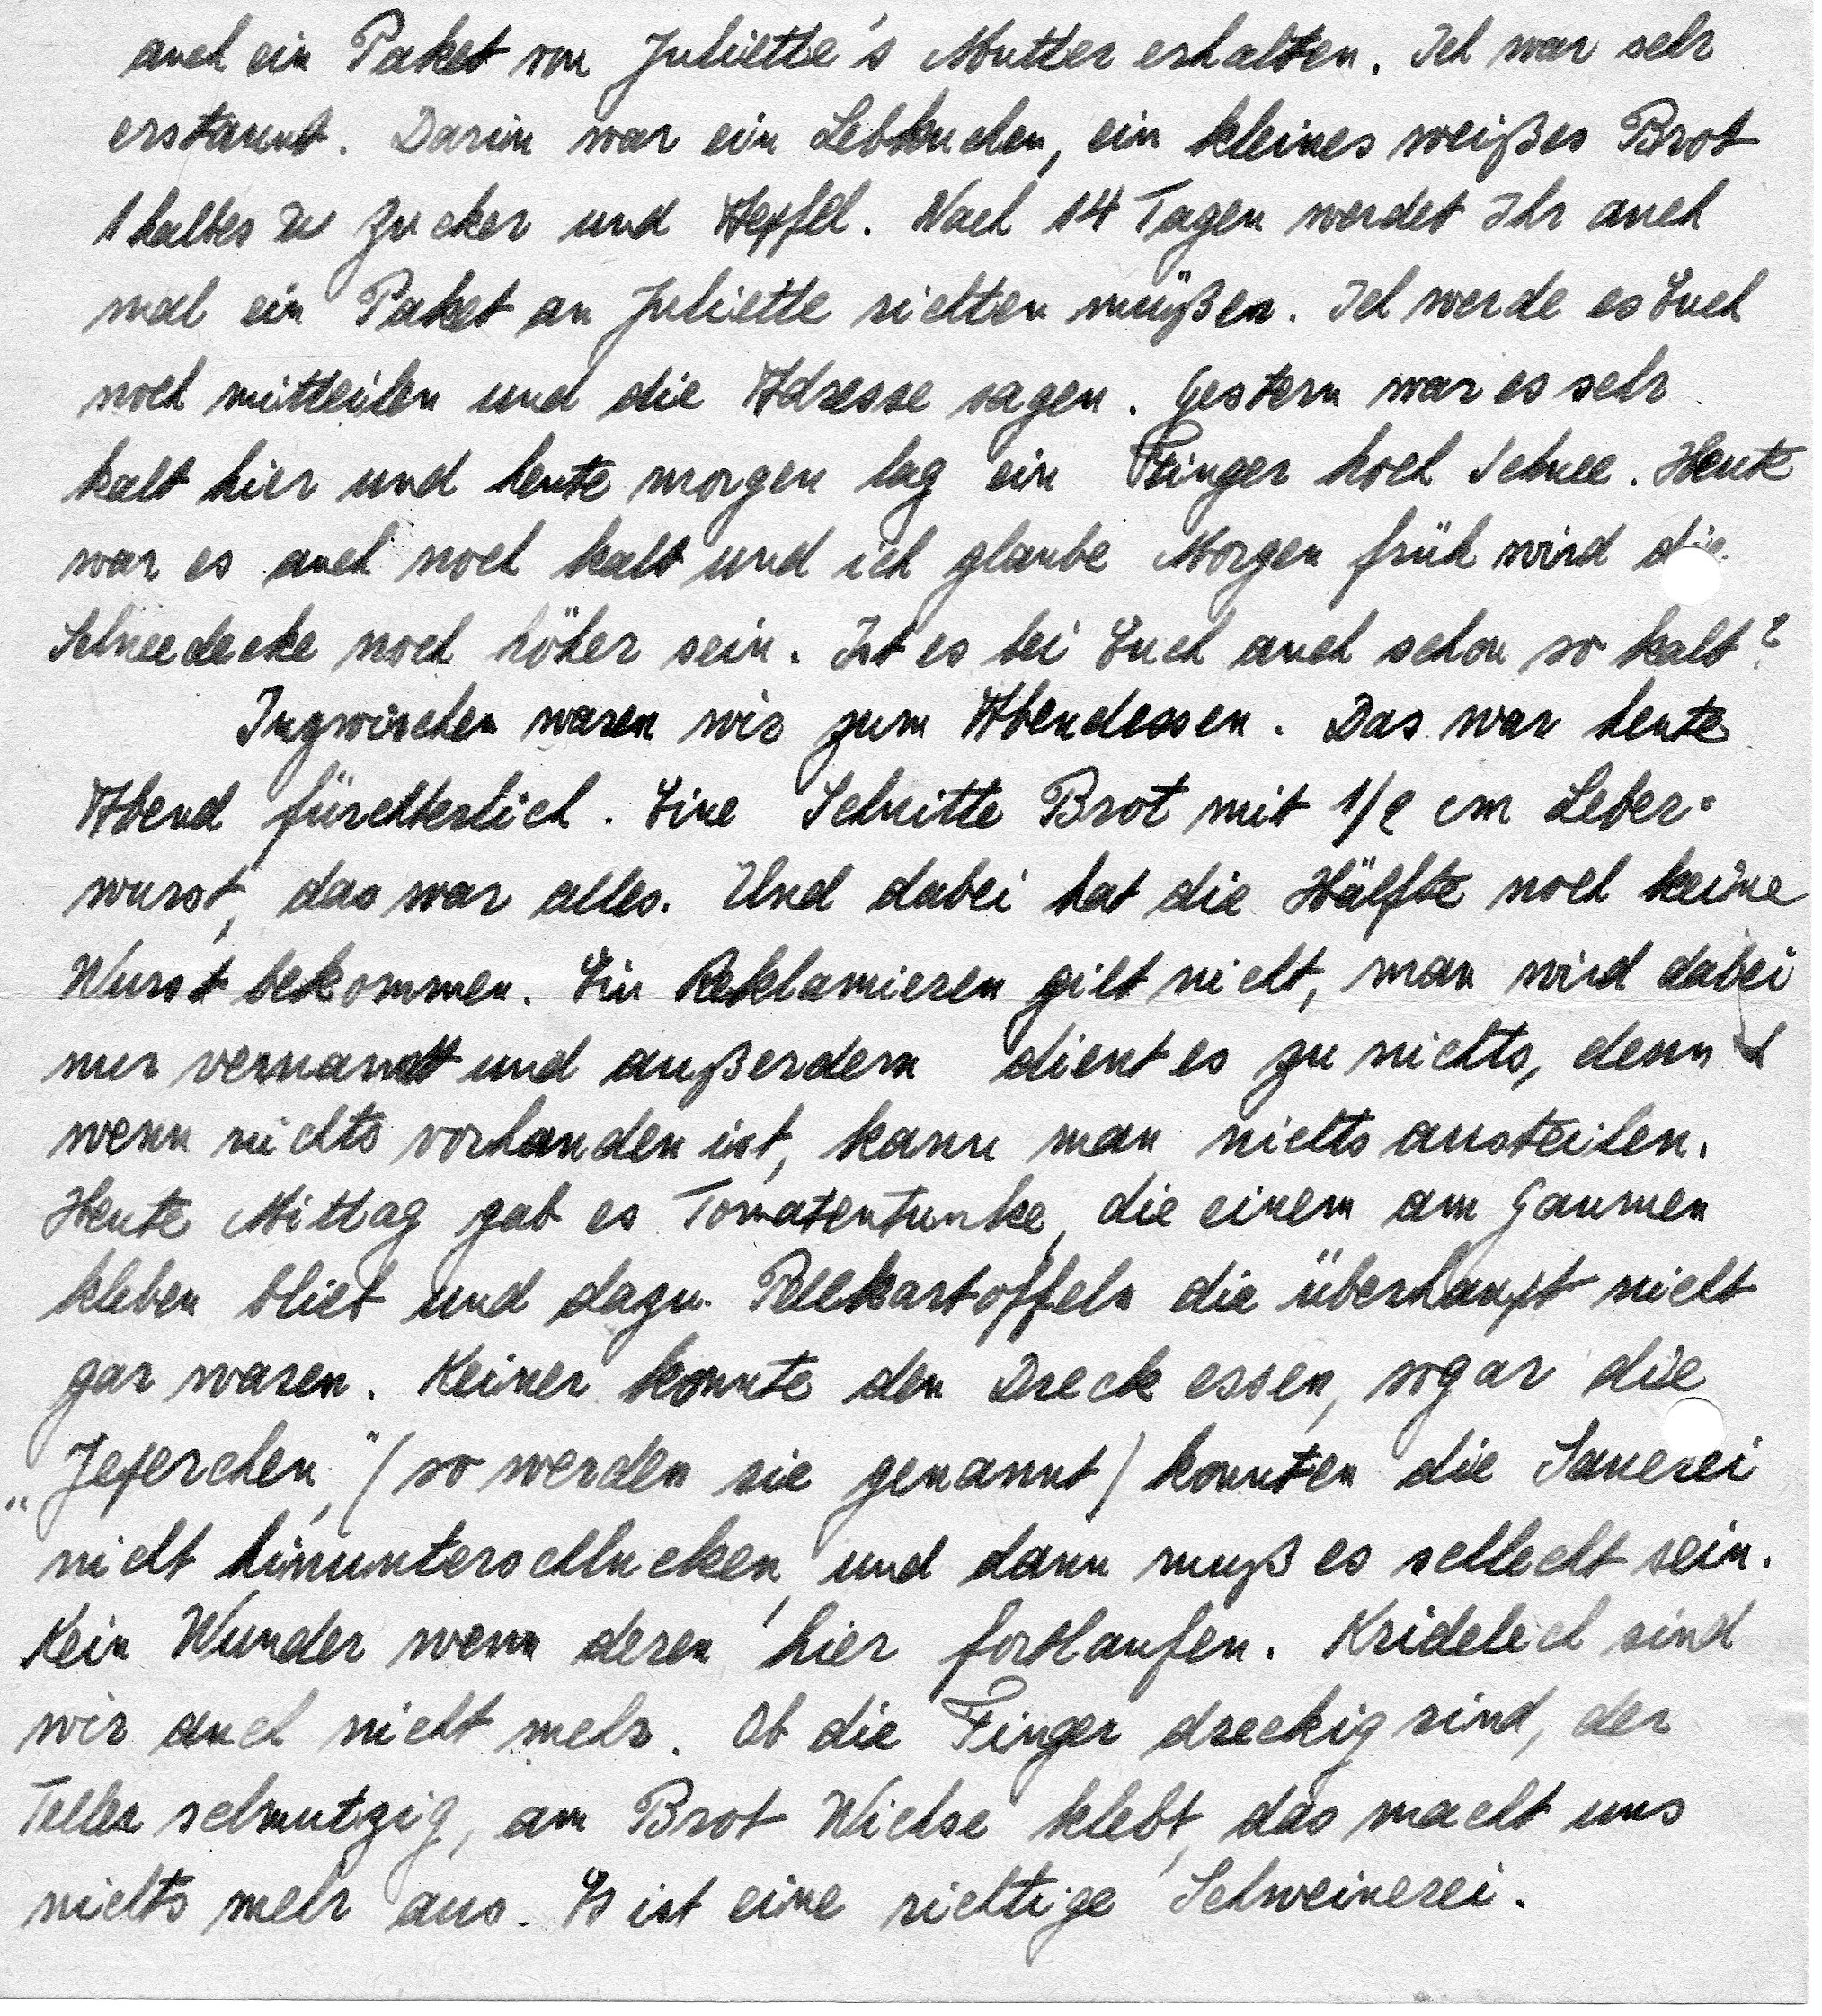 auch ein Paket von Juliette's Mutter erhalten. Ich war sehr
erstaunt. Darin war ein Lebkuchen, ein kleines weißes Brot
1 halbes ℔ Zucker und Aepfel. Nach 14 Tagen werdet Ihr auch
mal ein Paket an Juliette richten müßen. Ich werde es Euch
noch mitteilen und die Adresse sagen. Gestern war es sehr
kalt hier und heute morgen lag ein Finger hoch Schnee. Heute
war es auch noch kalt und ich glaube Morgen früh wird die
Schneedecke noch höher sein. Ist es bei Euch auch schon so kalt?
Inzwischen waren wir zum Abendessen. Das war heute
Abend fürchterlich. Eine Schnitte Brot mit 1/2 cm Leber=
wurst, das war alles. Und dabei hat die Hälfte noch keine
Wurst bekommen. Ein Reklamieren gilt nicht, man wird dabei
nur vernannt und außerdem dient es zu nichts, denn
wenn nichts vorhanden ist, kann man nichts austeilen.
Heute Mittag gab es Tomatentunke, die einem am Gaumen
kleben blieb und dazu Pellkartoffeln die überhaupt nicht
gar waren. Keiner konnte den Dreck essen, sogar die
„Jeferchen," (so werden sie genannt) konnten die Sauerei
nicht hinunterschlucken, und dann muß es schlecht sein.
Kein Wunder wenn deren hier fortlaufen. Kridelech sind
wir auch nicht mehr. Ob die Finger dreckig sind, der
Teller schmutzig, am Brot Wichse klebt, das macht uns
nichts mehr aus. Es ist eine richtige Schweinerei.